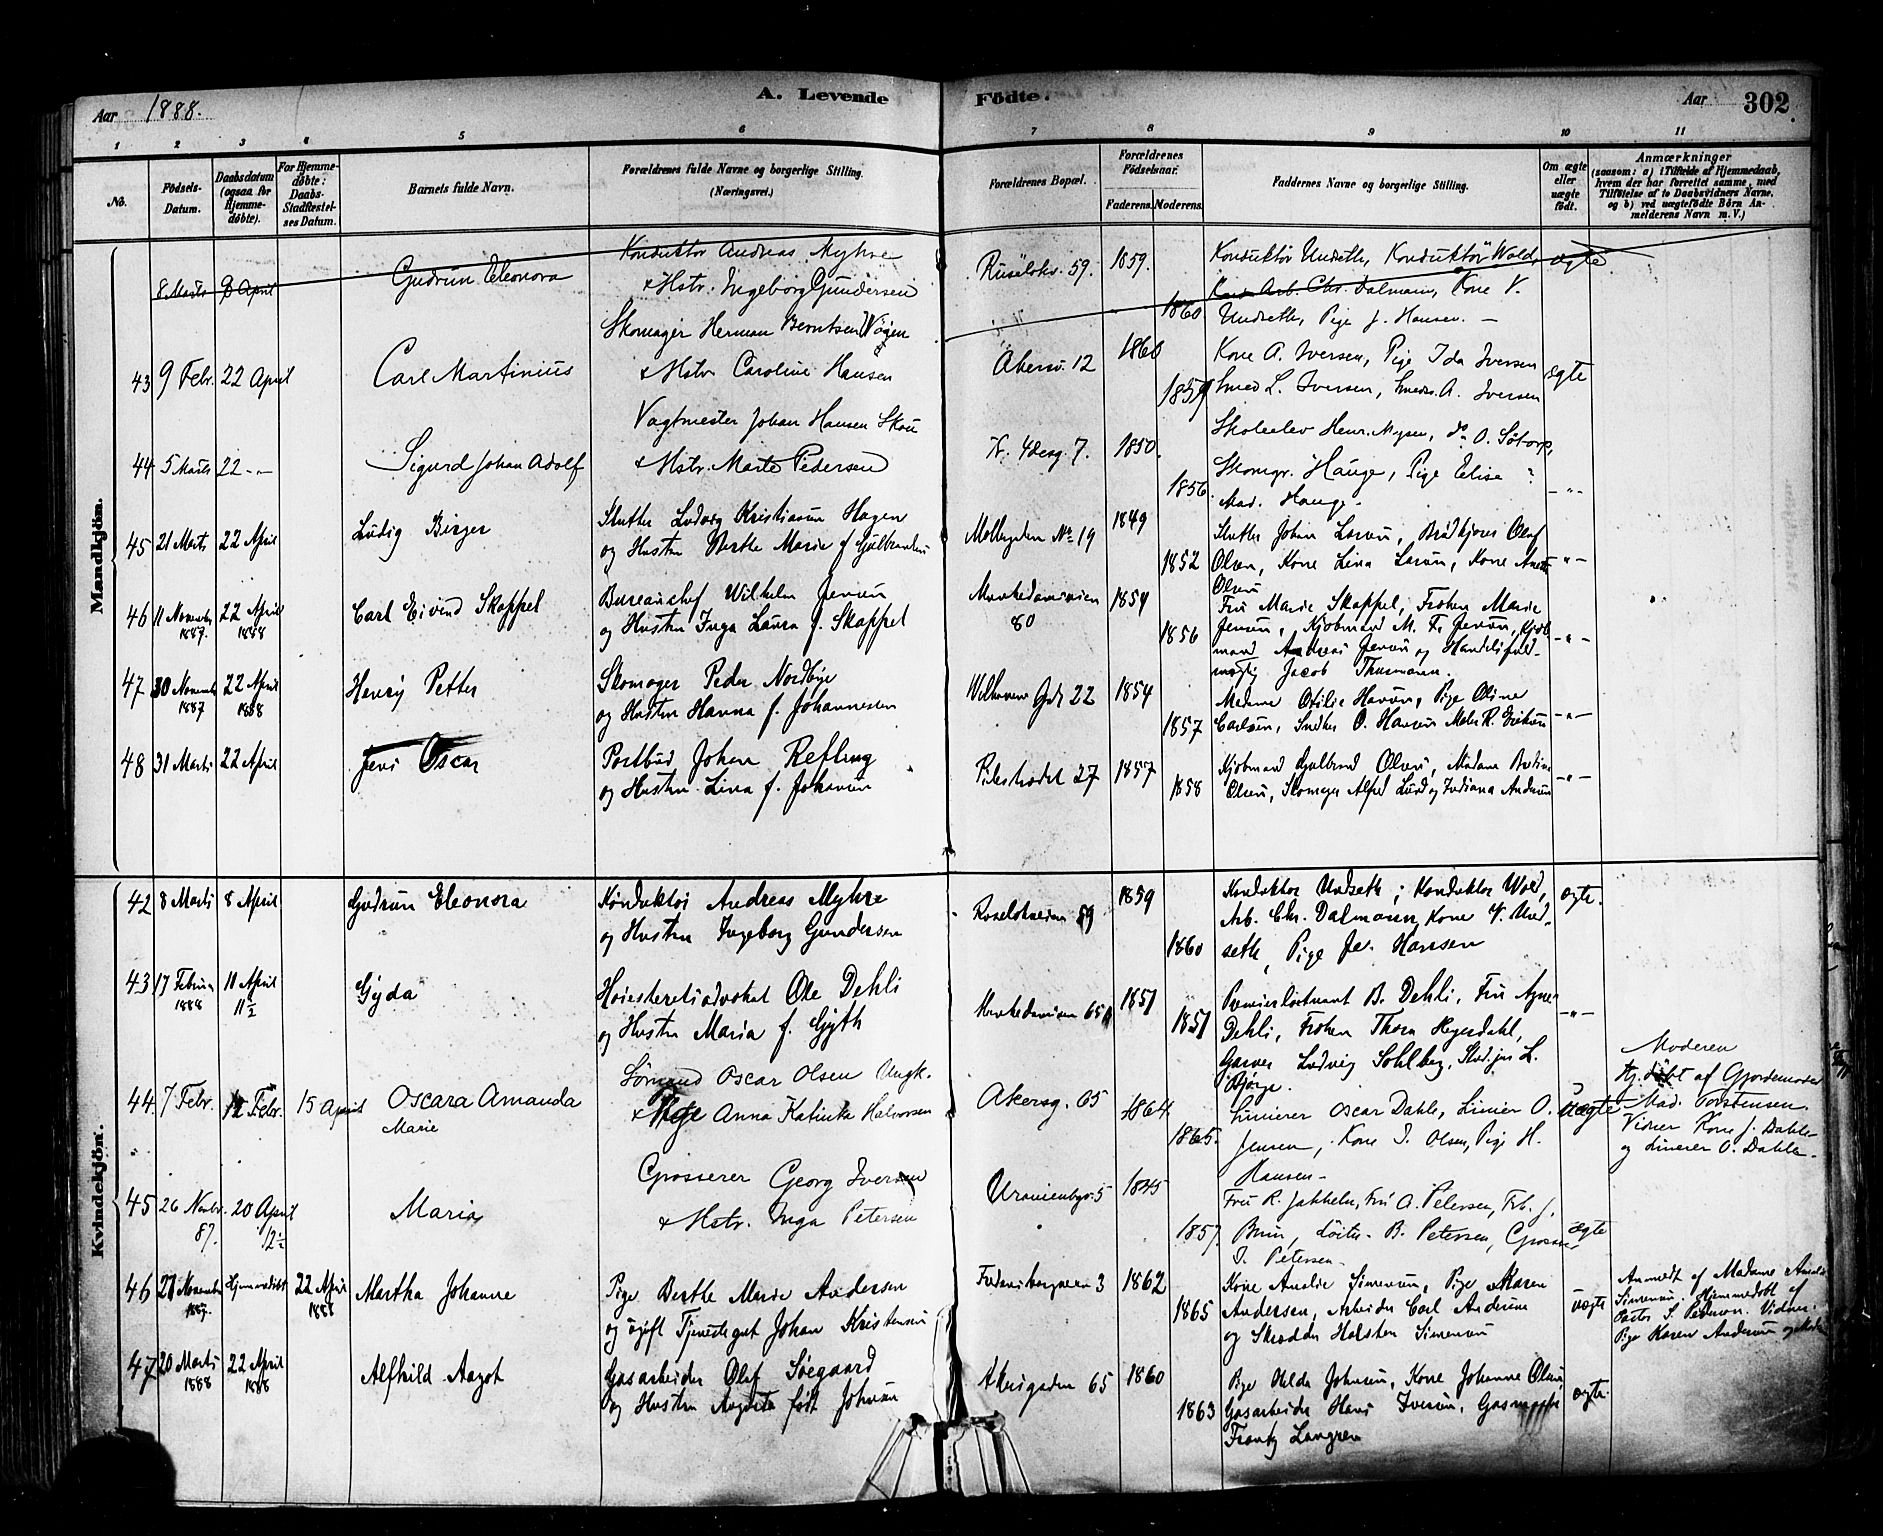 Aar 1888.
A. Levende Födte.
Aar 302.
1 2 3 4 5 6 7 8 9 10 11
No.
Födsels-
Datum.
Daabsdatum
(ogsaa for
Hjemme-
døbte).
For Hjemme-
døbte:
Daabs
Stadfæstel-
ses Datum.
Barnets fulde Navn.
Forældrenes fulde Navne og borgerlige Stilling.
(Næringsvei.)
Forældrenes Bopæl.
Forældrenes
Födselsaar.
Faderens. Moderens.
Faddernes Navne og borgerlige Stilling.
Om ægte
eller
uægte
födt.
Anmærkninger
(saasom: a) i Tilfælde af Hjemmedaab,
hvem der har forrettet samme, med
Tilföielse af to Daabsvidners Navne,
og b) ved uægtefödte Börn An-
melderens Navn m. V.)
Mandkjön.
8 Marts 8 April
Gudrun Eleonora
Konduktør Andreas Myhre
& Hstr. Ingeborg Gundersen
Ruseløkv. 59.
1859.
1860
Konduktør Undseth, Konduktör Wold,
Arb. Chr. Dalmann, Kone V.
Undseth, Pige J. Hansen. —
ægte
43 9 Febr. 22 April
Carl Martinius
Skomager Herman Berntsen Vogen
& Hstr. Caroline Hansen
Akersv. 12
1860
1859
Kone A. Iversen, Pige Ida Iversen
Smed L. Iversen, Smeds. A. Iversen
ægte
44 5 Marts 22 -"-
Sigurd Johan Adolf
Vagtmester Johan Hansen Skou
& Hstr. Marte Pedersen
7.
1850.
1856.
Skoleelev Henr. Mysen, do O.
Skomgr. Hauge, Pige Elise
Mad. Hauge.
-"-
45 21 Marts 22 April
Ludvig Birger
Ludvig Kristiansen Hagen
og Hustru Berthe Marie f. Gulbrandsen
Møllergaden No 19
1849
1852
Johan Larsen, Brødkjører Olaf
Olsen, Kone Lina Larsen, Kone Anette
Olsen
-"-
46 11 November 22 April
1887. 1888
Carl Eivind Skappel
Bureauchef Wilhelm Jensen
og Hustru Inga Laura f. Skappel
Munkedamsveien
80
1854
1856
Fru Marie Skappel, Frøken Marie
Jensen, Kjøbmand M. F. Jensen, Kjøb-
mand Andreas Jensen og Handelsfuld-
mægtig Jacob Thusmann.
-"-
47 30 November 22 April
1887 1888
Henry Petter
Skomager Peder Nordbye
og Hustru Hanna f. Johannesen
22
1854
1857
Madame Otilie Hansen, Pige Oline
Carlsen, Snedker O. Hansen Maler R. Eriksen
-"-
48 31 Marts 22 April
Jens Oscar
Postbud Johan Refling
og Hustru Lina f. Johansen
Pilestrædet 27
1857
1858
Kjøbmand Gulbrand Olsen, Madame
Olsen, Skomager Alfred Lund og Indiana Andersen
-"-
Kvindekjön.
42 8 Marts 8 April
Gudrun Eleonora
Konduktør Andreas Myhre
og Hustru Ingeborg Gundersen
Ruseløkveien 59
1859
1860
Konduktør Undseth; Konduktør Wold,
Arb. Chr. Dalmann, Kone V. Und-
seth, Pige Je. Hansen
ægte.
43 17 Februar 11 April
1888 11½
Gyda
Høiesteretsadvokat Ole Dehli
og Hustru Maria f. Gjøth
Munkedamsveien 65
1851
1851
Premierløitnant B. Dehli, Fru Agnes
Dehli, Frøken Thora Heyerdahl,
Garver Ludvig Sohlberg, Stud. jur L.
Bjørge.
-"-
44. 7 Febr. 12 Febr. 15 April
Oscara Amanda
Marie
Sømand Oscar Olsen Ungk.
& Pige Anna Katinka Halvorsen
Akersg. 65
1864
1865.
Linierer Oscar Dahle, Linier O.
Jensen, Kone J. Olsen, Pige H.
Hansen -
uægte
Moderen
Hj. døbt af Gjordemoder
Mad. Torstensen.
Vidner Kone J. Dahle
og Linierer O. Dahle.
45 26 Novbr. 20 April
87. 12½
Maria
Grosserer Georg Iversen
& Hstr. Inga Petersen
Uranienbgv. 5
1845
1857.
Fru R. Jakheln, Fru A. Petersen, Frk. J.
Brun, Løitn. B. Petersen, Grosser
J. Petersen.
ægte
46 21 November Hjemmedøbt 22 April
1887. 1888
Martha Johanne
Pige Berthe Marie Andersen
og ugift Tjenestegut Johan Kristensen
Fredensborgveien 3
1862
1865
Kone Amalie Simensen, Pige Maren
Andersen, Arbeider Carl Andersen
og Skrædder Halsten Simensen
uægte
Anmeldt af Madame Amalie
Simensen. Hjemmedøbt af
Pastor S. Pedersen. Vidner:
Pige Karen Andersen og Moderen
47 20 Marts 22 April
1888 1888
Alfhild Aagot
Gasarbeider Olaf Søegaard
og Hustru Augusta født Johnsen
Akersgaden 65
1860
1863
Pige Helda Johnsen, Kone Johanne Olsen,
Gasarbeider Hans Iversen, Gasmester
Frantz Langren
ægte.